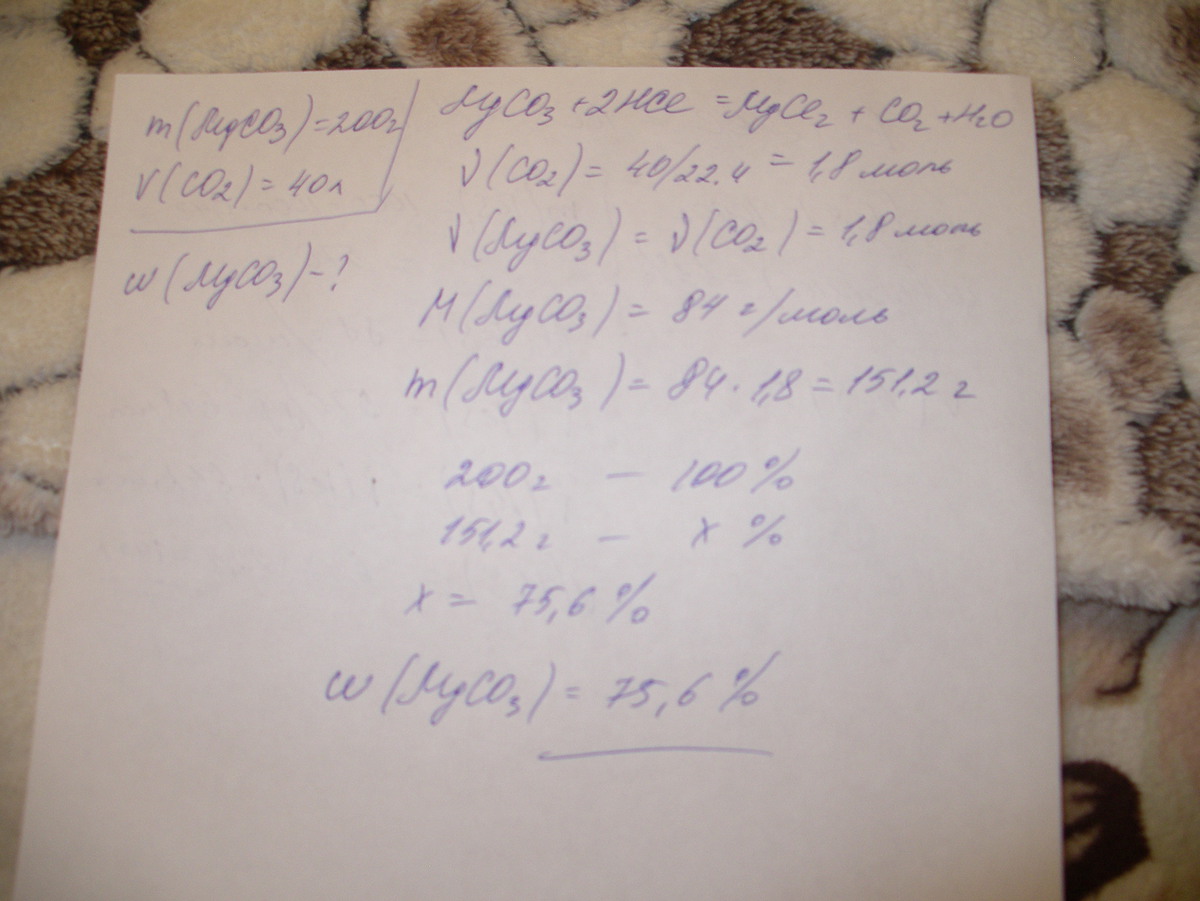 m(MgCO3)=200г
V(CO2)=40л
w(MgCO3)-?
MgCO3+2HCl=MgCl2+CO2+H2O
ν(CO2)=40/22.4=1,8моль
ν(MgCO3)=ν(CO2)=1,8моль
M(MgCO3)=84г/моль
m(MgCO3)=84·1,8=151,2г
200г - 100%
151,2г - x%
x=75,6%
w(MgCO3)=75,6%